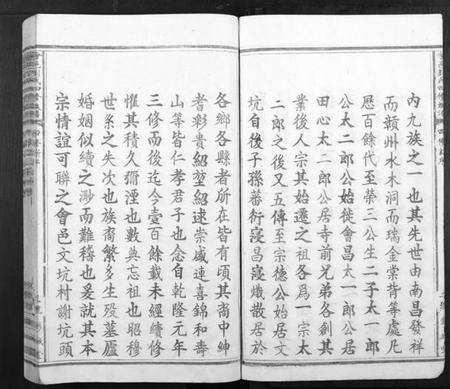 內九族之一也其先世由南昌發祥
而贛州水木洞而瑞金棠背等處凡
歷百餘代至榮三公生二子太一郎
公太二郎公始徙會昌太一郎公居
田心太二郎公居寺前兄弟各創其
業後人宗其始遷之祖各爲一宗太
二郎之後又五傳至宗德公始居文
坑自後子孫蕃衍寖昌寖熾散居於
各鄉各縣者所在皆有頃其裔中紳
耆彰貴紹堃紹速崇盛連喜錦和壽
山等皆仁孝君子也念自乾隆元年
三修而後迄今壹百餘載未經續修
懼其積久彌湮也數典忘祖也昭穆
世系之失次也族裔繁多生歿墓廬
婚姻似續之渺而難稽也爰就其本
宗情誼可聯之會邑文坑村謝坑頭